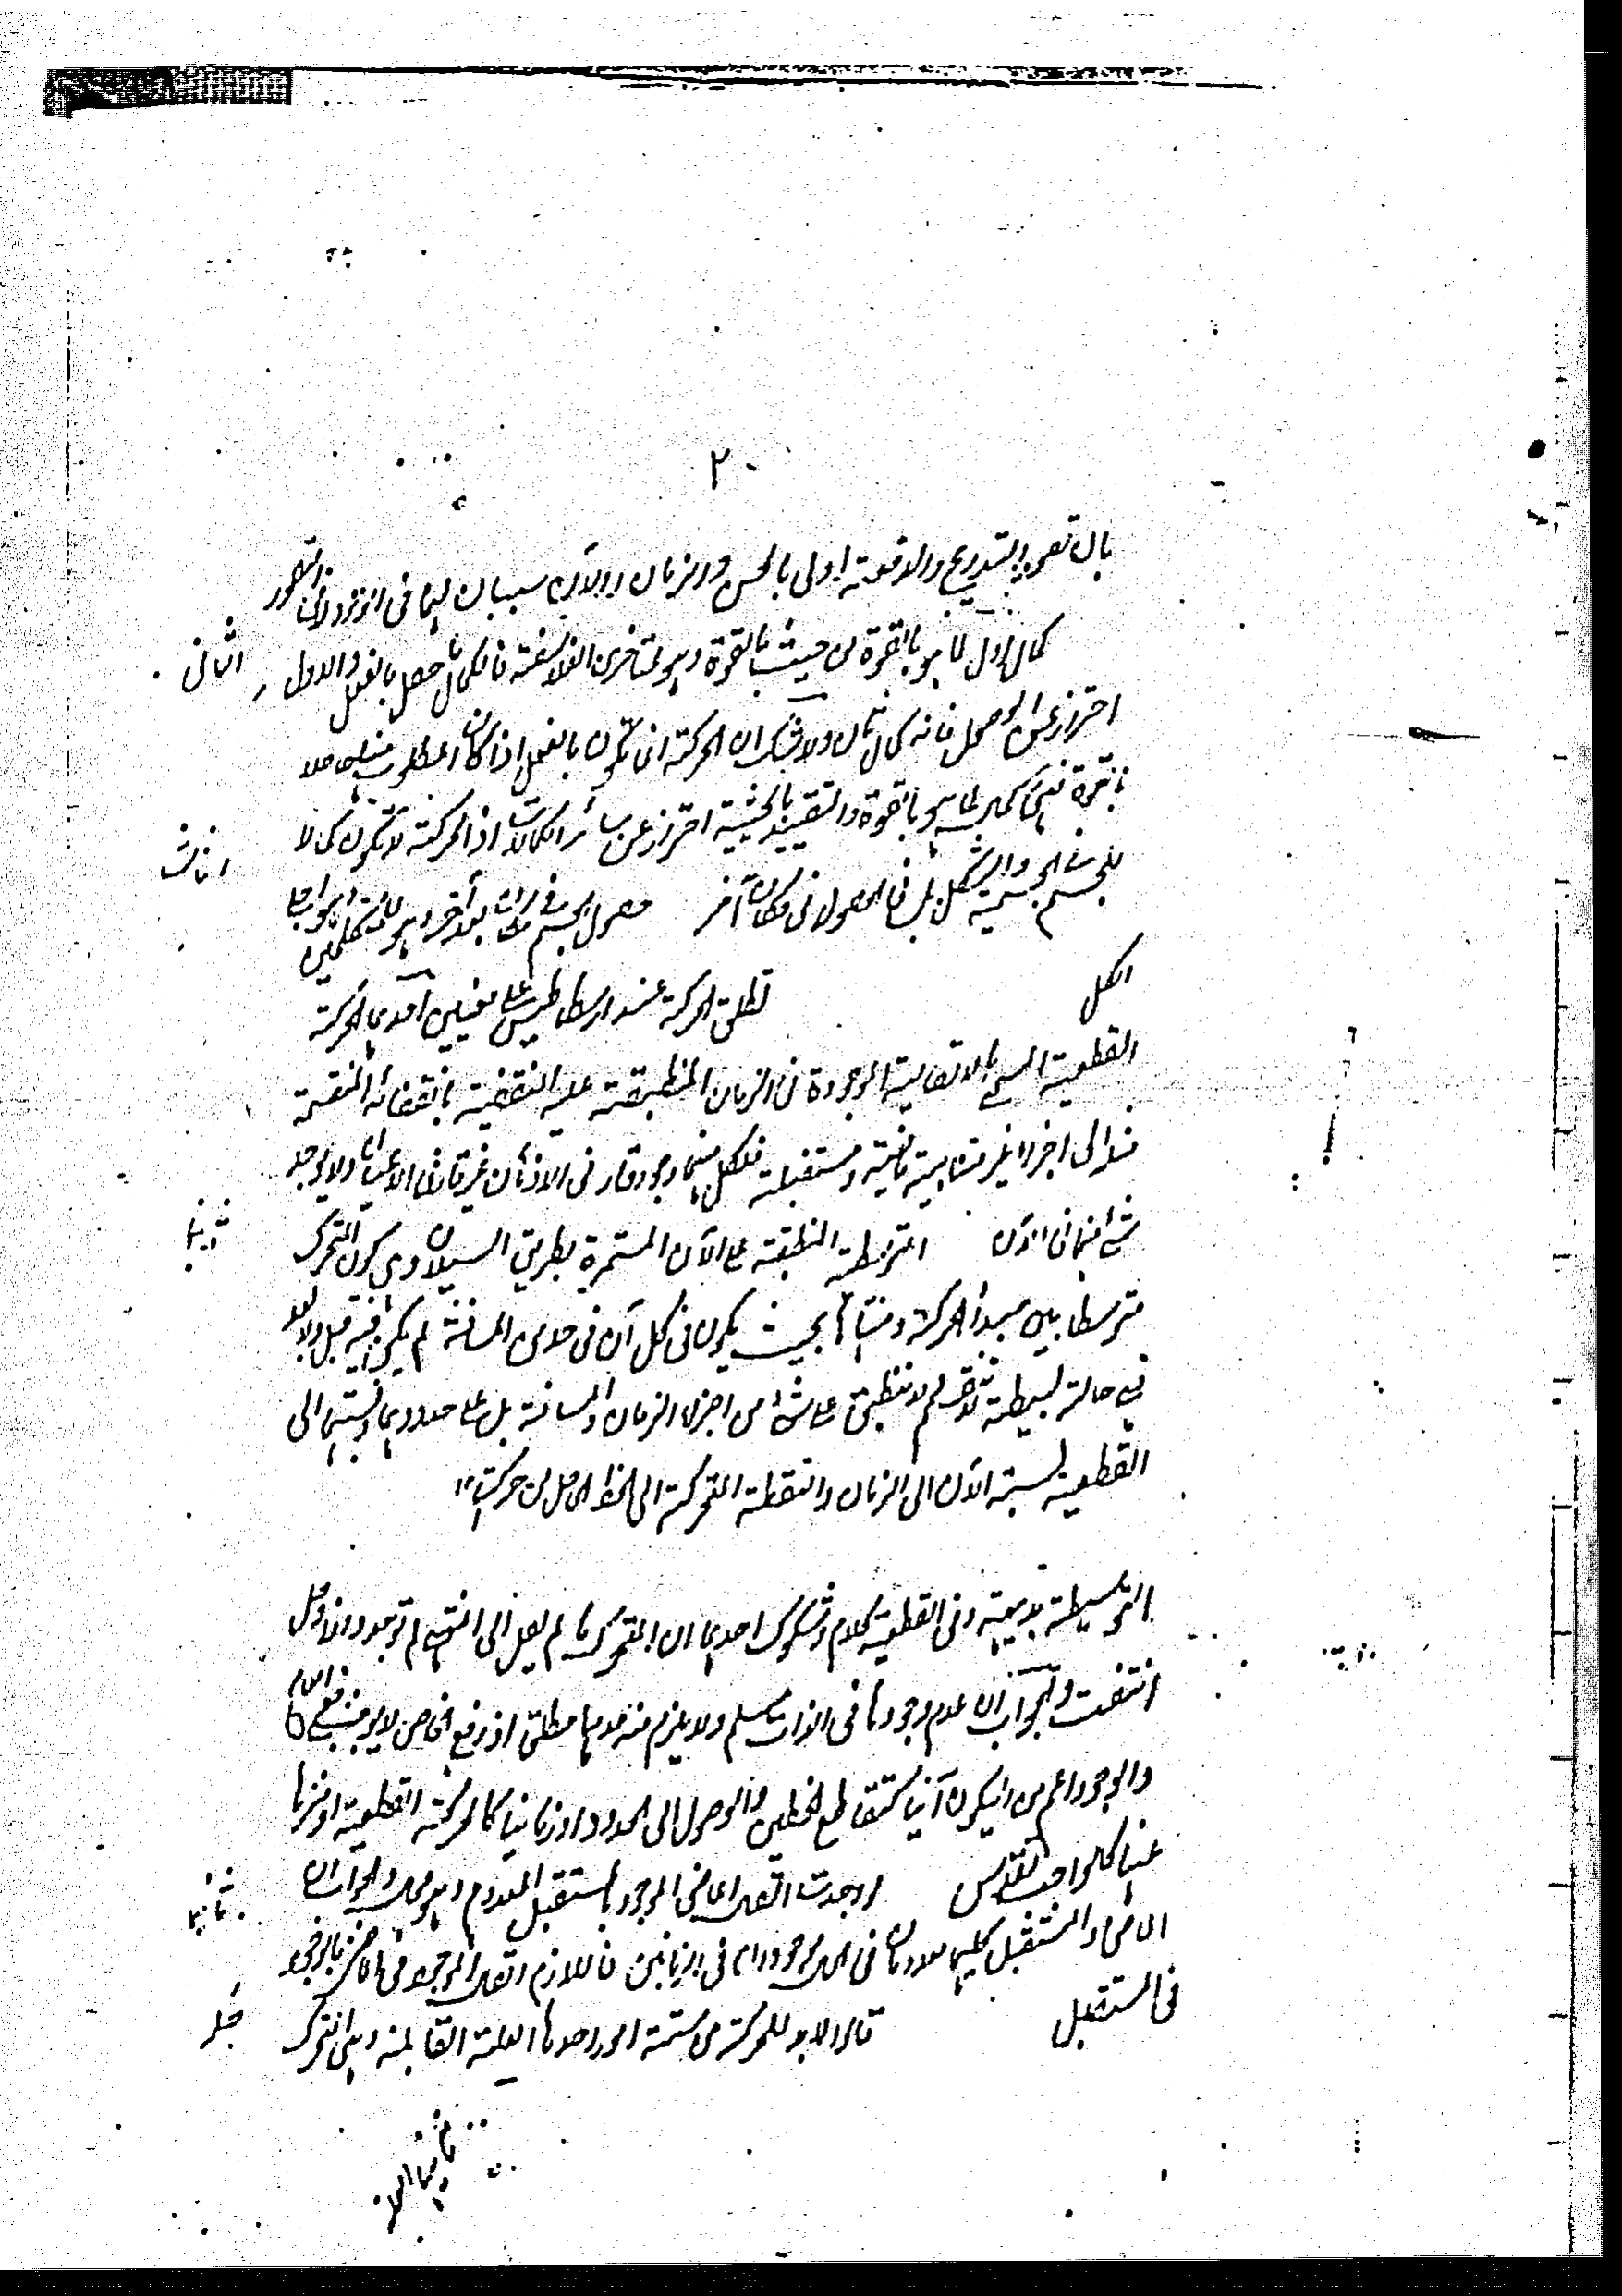 ٢٠
بان تصور التدريج واللادفعية اولى بالحس والزمان والآن سببان لهما فى الوجود لا فى التصور
الثانى
كمال اول لما هو بالقوة من حيث هو بالقوة وهو لمتأخرى الفلاسفة فالكمال ما حصل بالفعل والاول
احتراز عن الوصول فانه كمال ثان ولا شك ان الحركة انما تكون بالفعل اذا كان المطلوب
بالقوة فهى كمال لما هو بالقوة والتقييد بالحيثية احتراز عن سائر الكمالات اذ الحركة لا تكون كمالا
للجسم فى الجسمية والشكل بل فى الحصول فى مكان آخر
الثالث
حصول الجسم فى مكان بعد آخر وهو للمتكلمين
الكل
تطلق الحركة عند ارسطاطاليس على معنيين احدهما الحركة
القطعية المسماة بالاتصالية الموجودة فى الزمان المنطبقة عليه المنقضية بانقضائه المنقسمة
منه الى اجزاء غير متناهية ماضية ومستقبلة فلكل منهما وجود قار فى الاذهان غير قار فى الاعيان ولا يوجد
شئ منهما فى الآن
ثانيهما
التوسطية المنطبقة على الآن المستمرة بطريق السيلان وهى كون المتحرك
متوسطا بين مبدأ الحركة ومنتهاها بحيث يكون فى كل آن فى حد من المسافة لم يكن فيه قبل ولا بعد
فهى حالة بسيطة لا تنقسم ولا تنطبق على شئ من اجزاء الزمان والمسافة بل على حدودهما ونسبتها الى
القطعية نسبة الآن الى الزمان والنقطة المتحركة الى الخط الحاصل من حركتها
التوسطية بديهية وفى القطعية كلام وشكوك احدها ان المتحرك ما لم يصل الى المنتهى لم توجد واذا وصل
انتفت والجواب ان عدم وجودها فى الآن مسلم ولا يلزم منه عدمها مطلقا اذ رفع الخاص لا يوجب رفع العام
والوجود اعم من ان يكون آنيا كتقاطع الخطين والوصول الى الحدود او زمانيا كالحركة القطعية او منزها
عنهما كالواجب المقدس
ثانيها
لو وجدت اتصل الماضى الموجود بالمستقبل المعدوم وهو محال والجواب ان
الماضى والمستقبل كليهما معدومان فى الحال موجودان فى زمانهما فاللازم اتصال الموجود فى الماضى بالموجود
فى المستقبل
قالوا لا بد للحركة من ستة امور احدها العلة القابلة وهى المتحرك